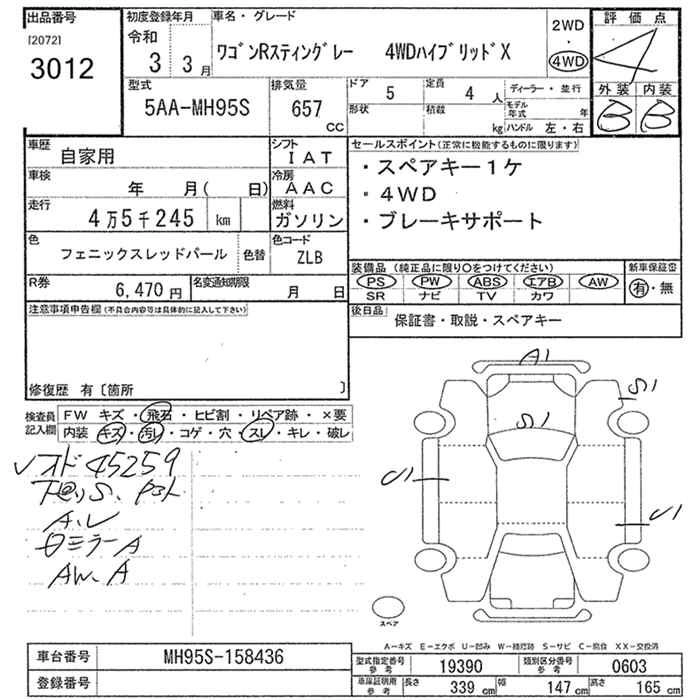 出品番号
[2072]
3012
初度登録年月
令和
3 3月
車名・グレード
ワゴンRスティングレー 4WDハイブリッドX
2WD
・
4WD
評価点
4
外装 内装
B B
型式
5AA-MH95S
排気量
657
cc
ドア
5
定員
4 人
形状
積載
kg
ディーラー・並行
モデル年式 年
ハンドル 左・右
車歴 自家用
シフト
IAT
車検 年 月( 日)
冷房
AAC
走行 4万5千245 km
燃料
ガソリン
色
フェニックスレッドパール 色替
色コード
ZLB
R券 6,470円
名変通知期限 月 日
セールスポイント(正常に機能するものに限ります)
・スペアキー1ケ
・4WD
・ブレーキサポート
装備品 (純正品に限り○をつけてください)
新車保証書
PS PW ABS エアB AW
有・無
SR ナビ TV カワ
後日品 保証書・取説・スペアキー
注意事項申告欄(不具合内容等は具体的に記入して下さい)
修復歴 有〔箇所 〕
検査員記入欄
FW キズ・飛石・ヒビ割・リペア跡・×要
内装 キズ・汚レ・コゲ・穴・スレ・キレ・破レ
レオド45259
A.U
ロミラーA
AW.A
A1
S1
S1
U1
U1
スペア
A-キズ E-エクボ U-凹み W-補修跡 S-サビ C-腐食 XX-交換済
車台番号 MH95S-158436
登録番号
型式指定番号 参考 19390
類別区分番号 参考 0603
車庫証明用 参考 長さ 339 cm 幅 147 cm 高さ 165 cm